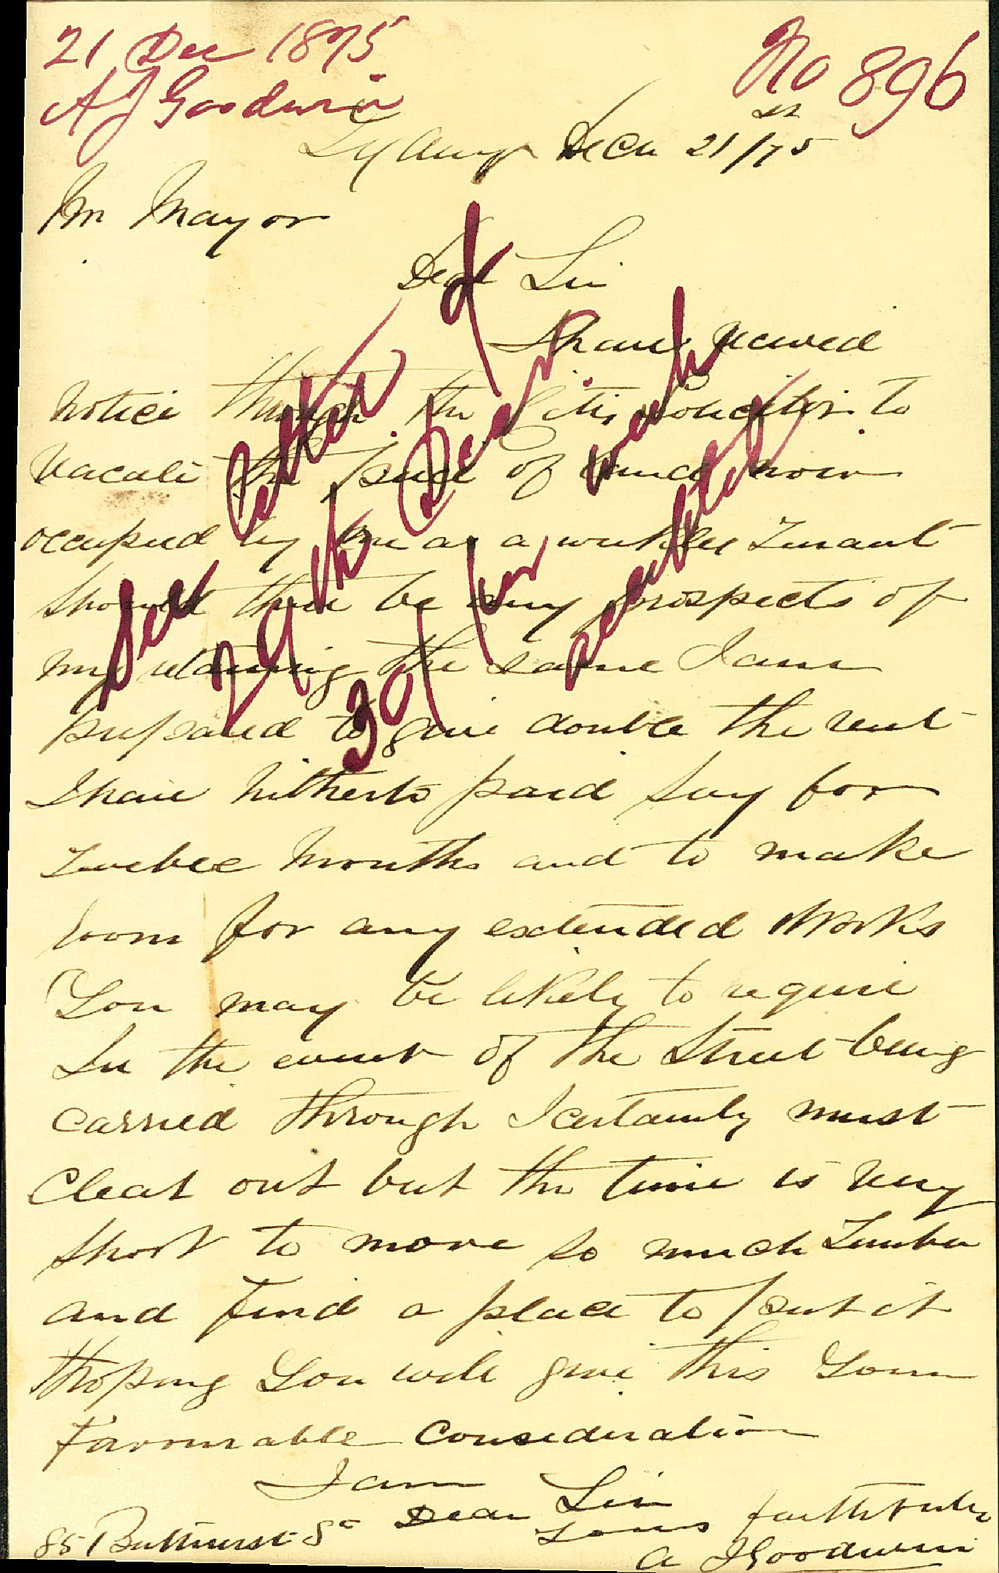 21 Dec 1875
A J Goodwin
No 896
Sydney Decr 21st/75
Mr Mayor
Dear Sir
I have received
notice through the City Solicitor to
vacate the piece of land now
occupied by me as a weekly Tenant
should there be any prospects of
my retaining the same I am
prepared to give double the rent
I have hitherto paid say for
Twelve Months and to make
room for any extended Works
You may be likely to require
In the event of the Street being
carried through I certainly must
Clear out but the time is very
short to move so much Timber
and find a place to put it
Hoping You will give this Your
Favourable Consideration
I am
Dear Sir
Yours faithfully
A J Goodwin
85 Bathurst St
See letter of
29th Decr
30/ per week